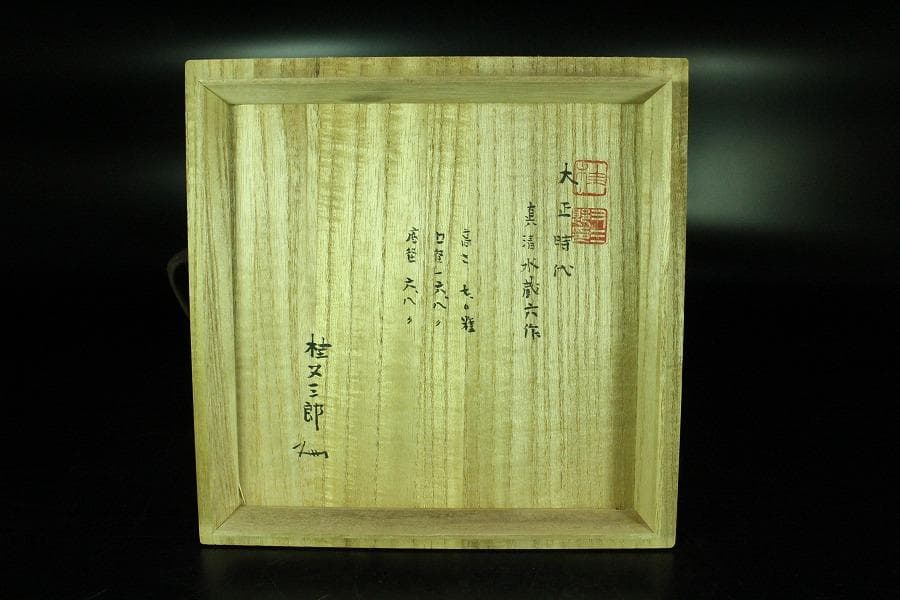 大正時代
真清水蔵六作
高さ 七.〇糎
口径 一六.八〃
底径 六.八〃
桂又三郎